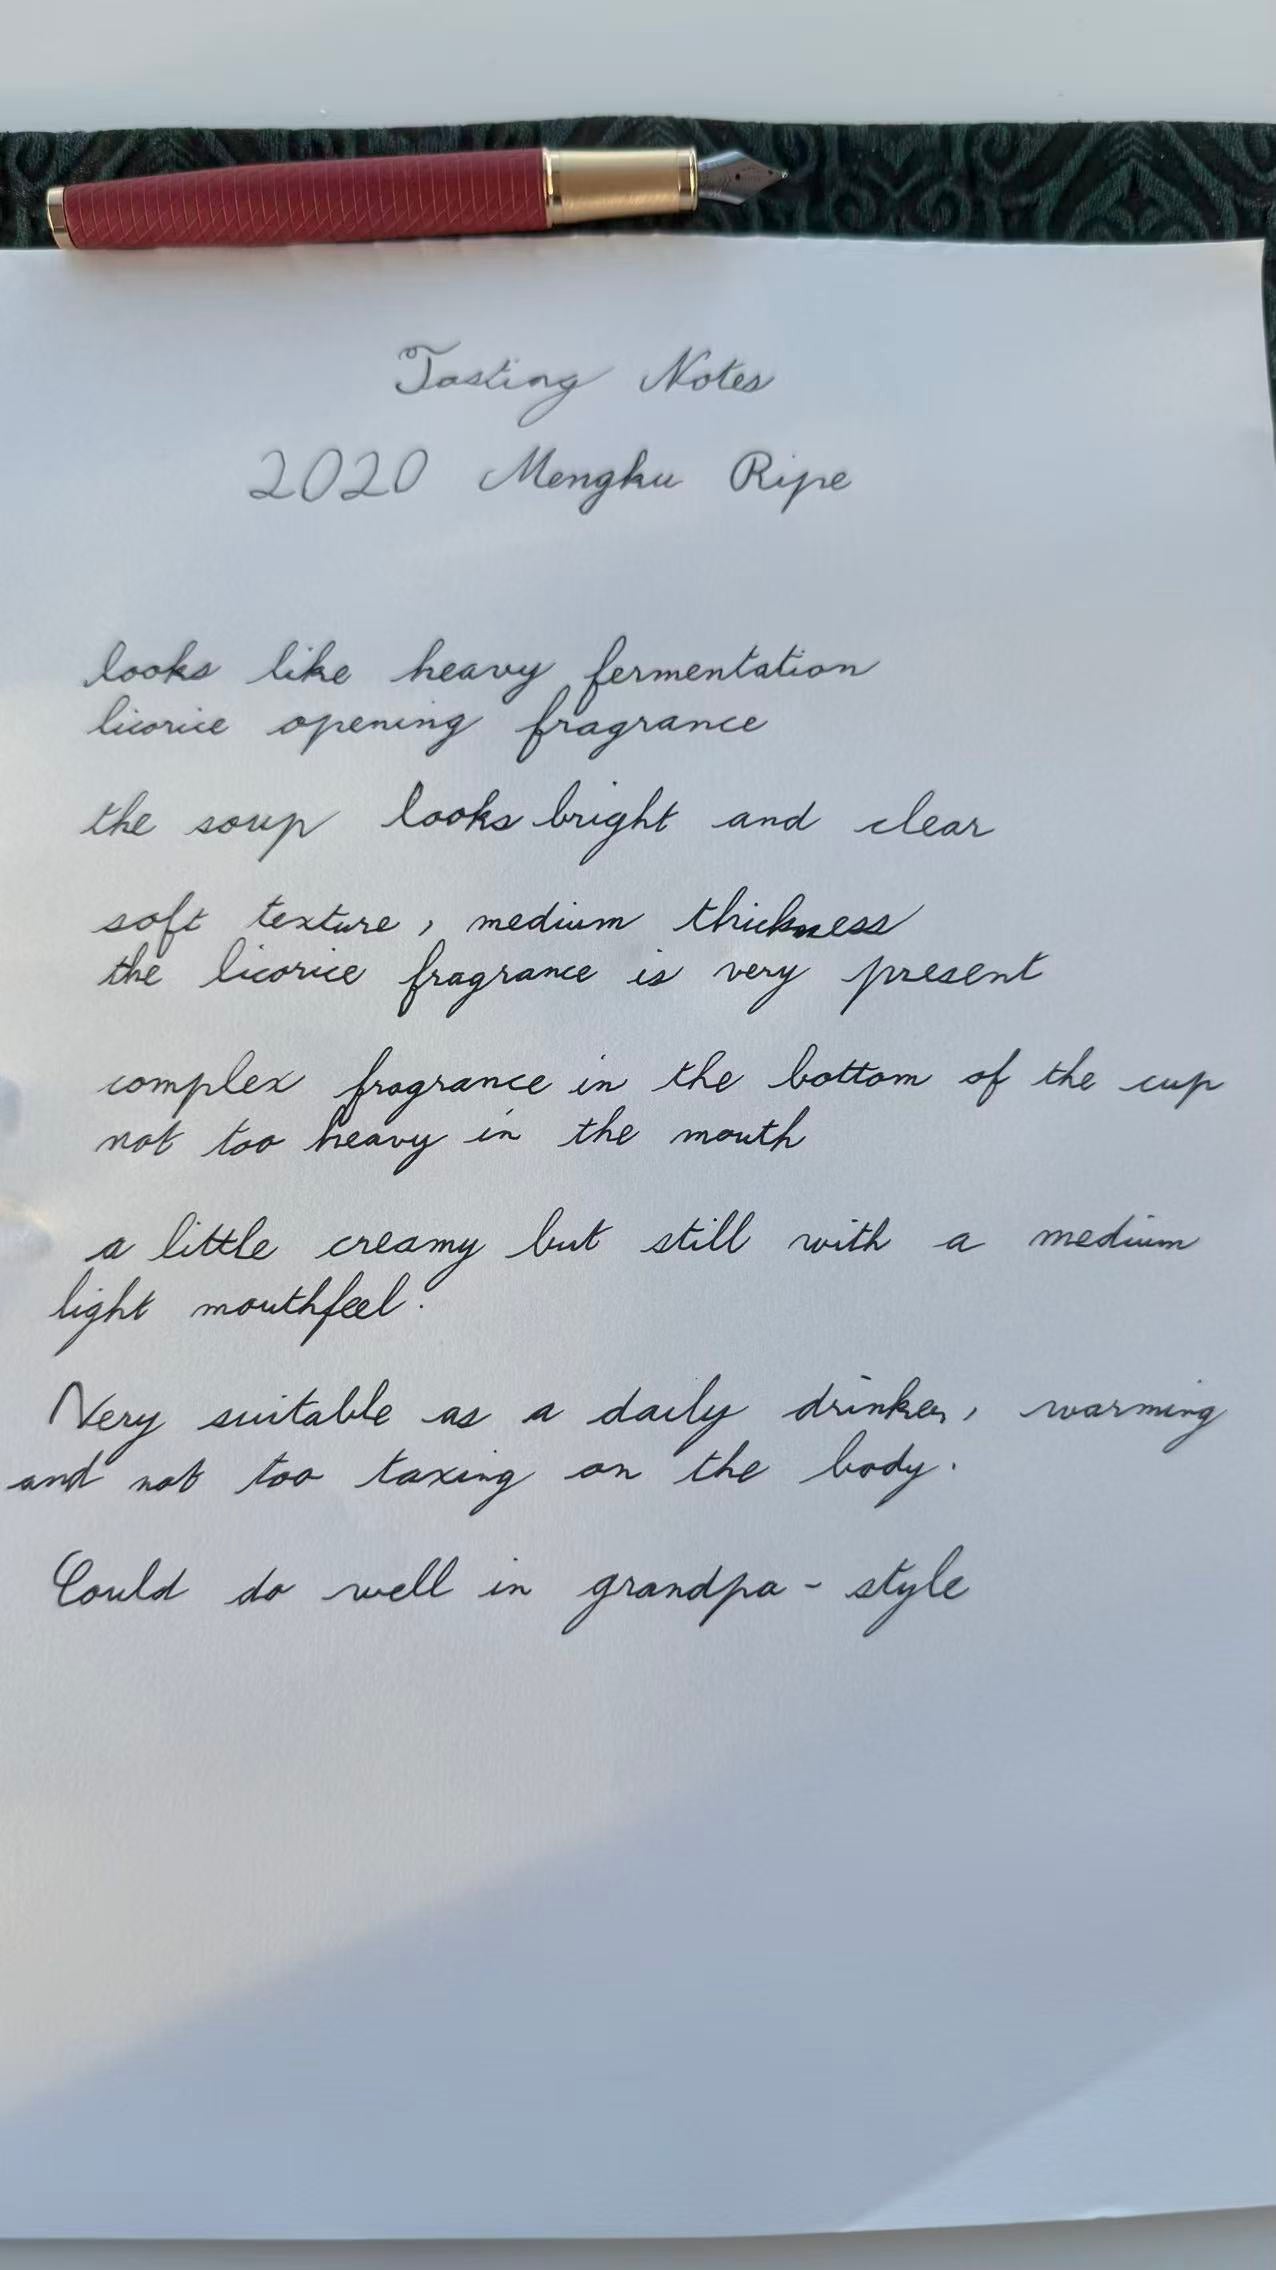 Tasting Notes
2020 Mengku Ripe
looks like heavy fermentation
licorice opening fragrance
the soup looks bright and clear
soft texture, medium thickness
the licorice fragrance is very present
complex fragrance in the bottom of the cup
not too heavy in the mouth
a little creamy but still with a medium
light mouthfeel.
Very suitable as a daily drinker, warming
and not too taxing on the body.
Could do well in grandpa-style